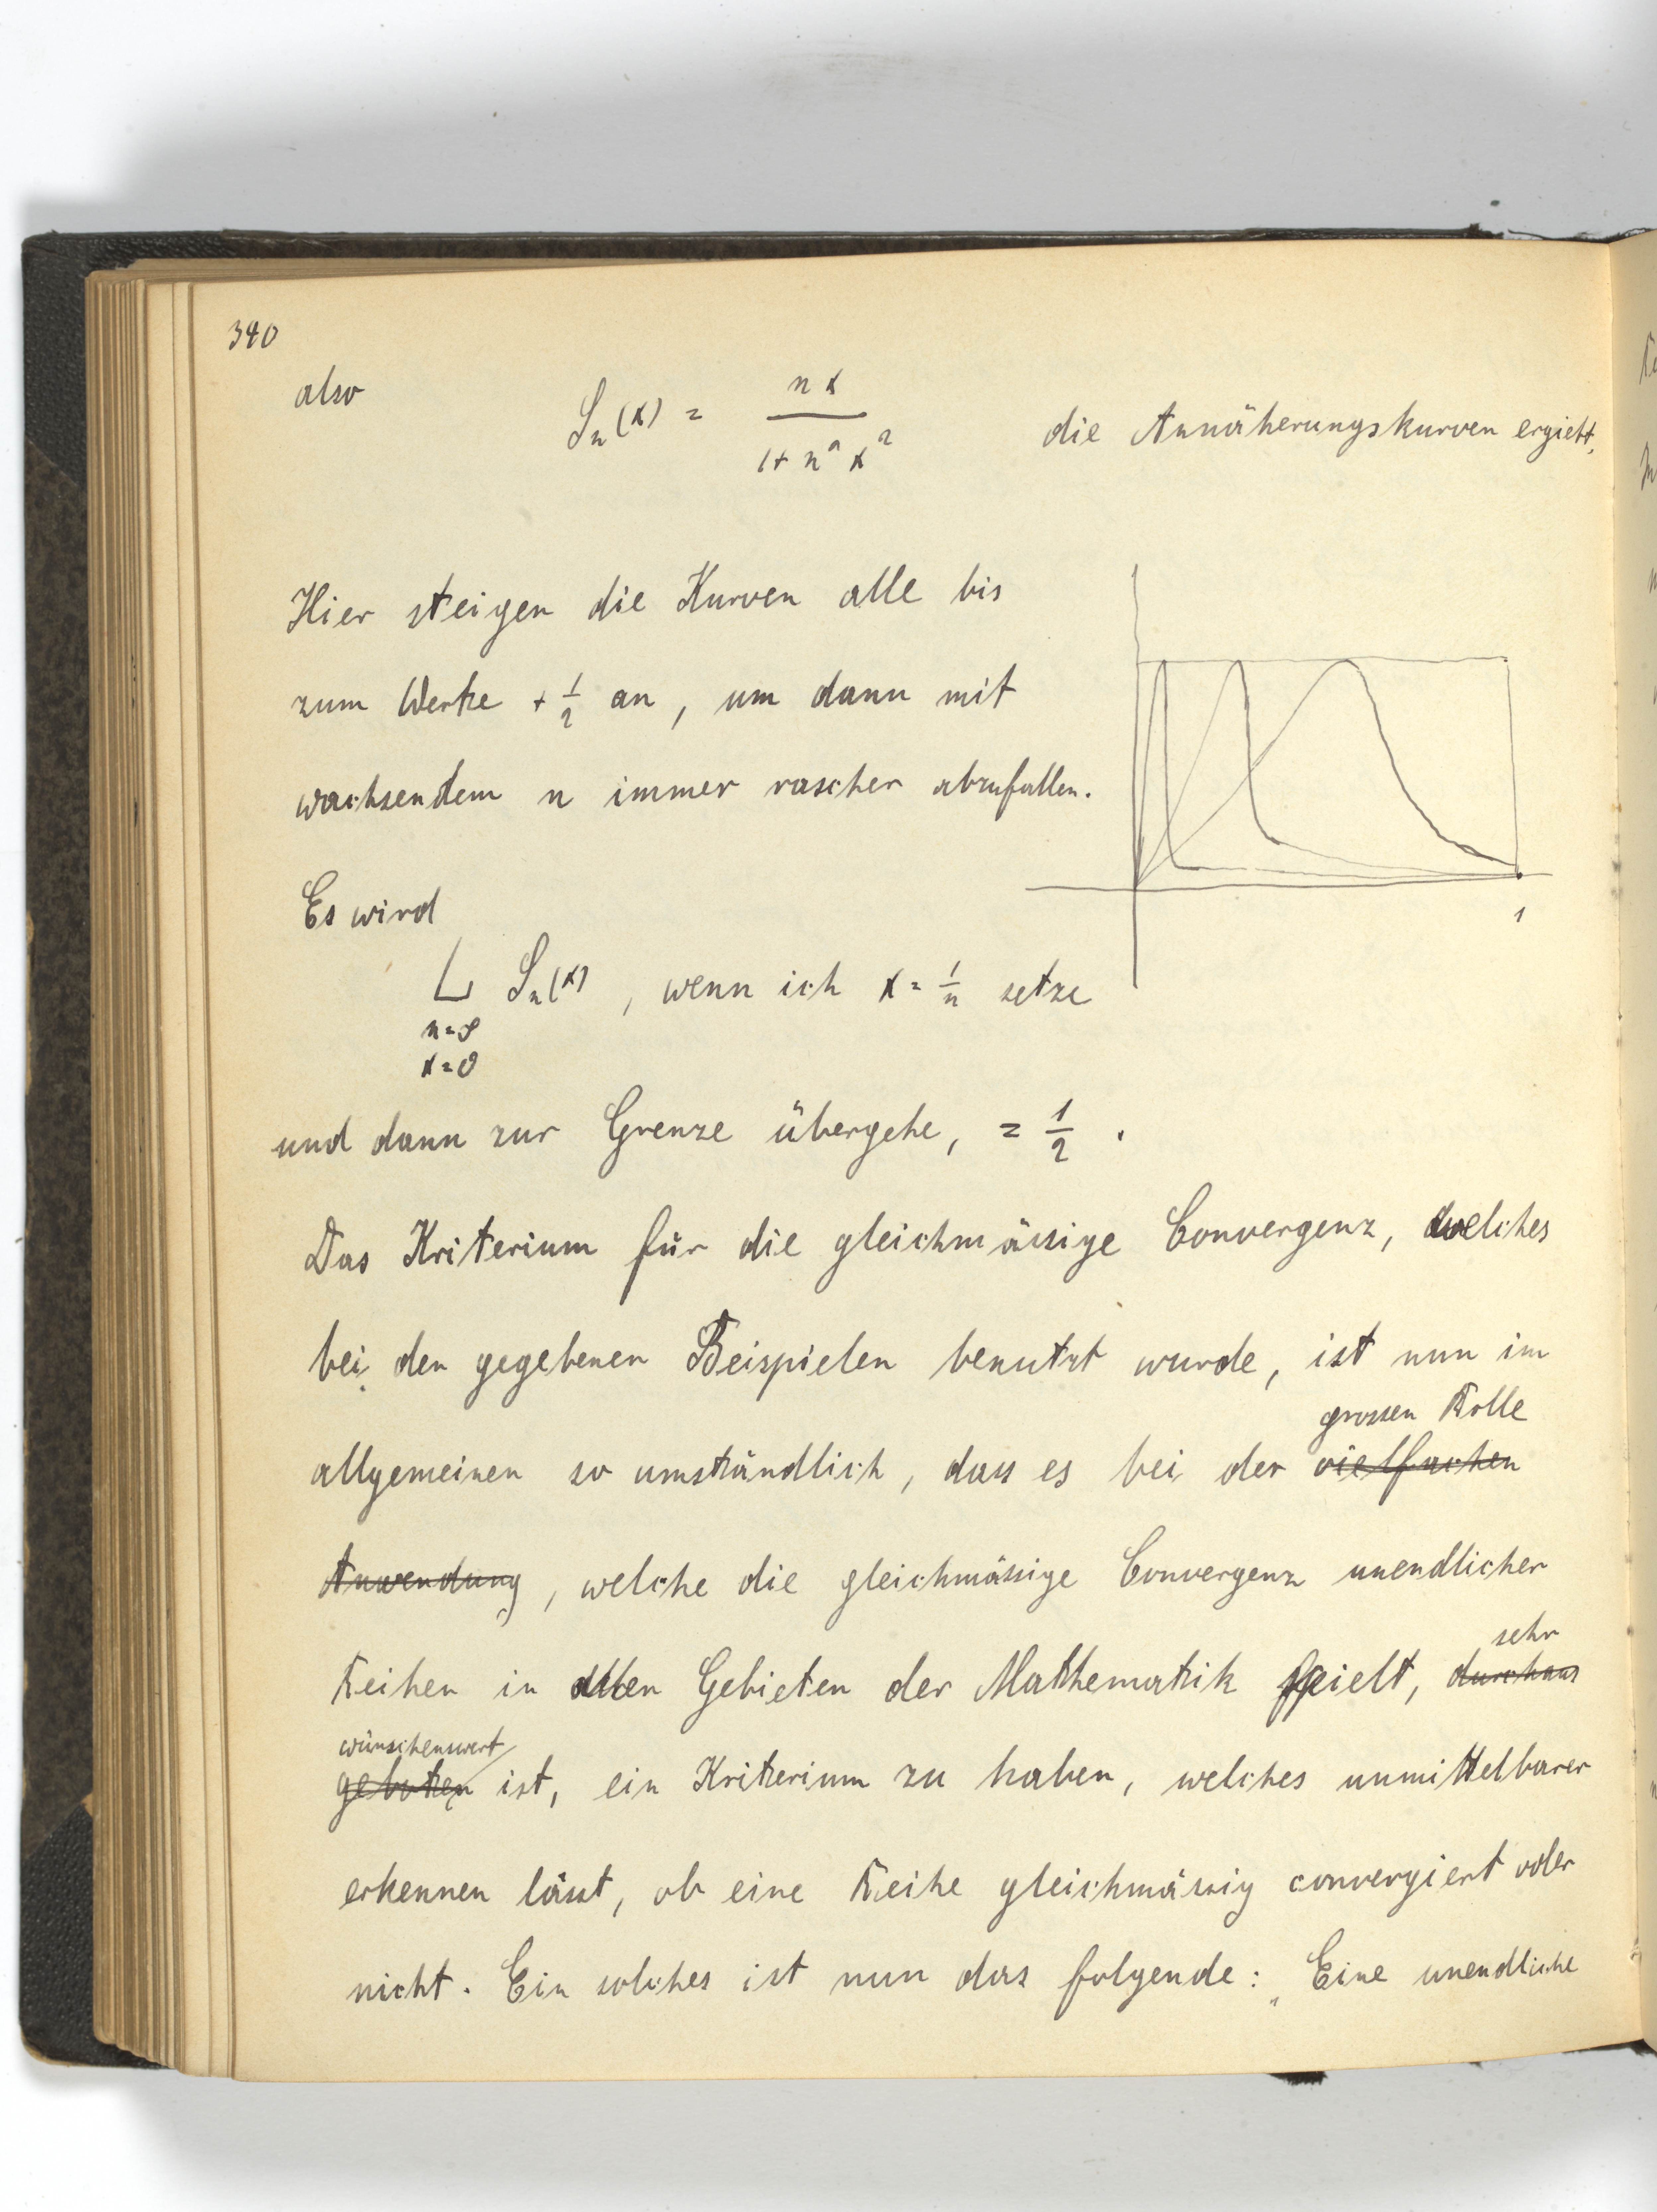 340
also S_n(x) = nx / (1 + n² x²) die Annäherungskurven ergiebt,
Hier steigen die Kurven alle bis
zum Werte + 1/2 an, um dann mit
wachsendem n immer rascher abzufallen.
1
Es wird
L S_n(x), wenn ich x = 1/n setze
n=∞
x=0
und dann zur Grenze übergehe, = 1/2 .
Das Kriterium für die gleichmässige Convergenz, welches
bei den gegebenen Beispielen benutzt wurde, ist nun im
grossen Rolle
allgemeinen so umständlich, dass es bei der vielfachen
Anwendung, welche die gleichmässige Convergenz unendlicher
sehr
Reihen in allen Gebieten der Mathematik spielt, durchaus
wünschenswert
geboten ist, ein Kriterium zu haben, welches unmittelbarer
erkennen lässt, ob eine Reihe gleichmässig convergiert oder
nicht. Ein solches ist nun das folgende: „Eine unendliche